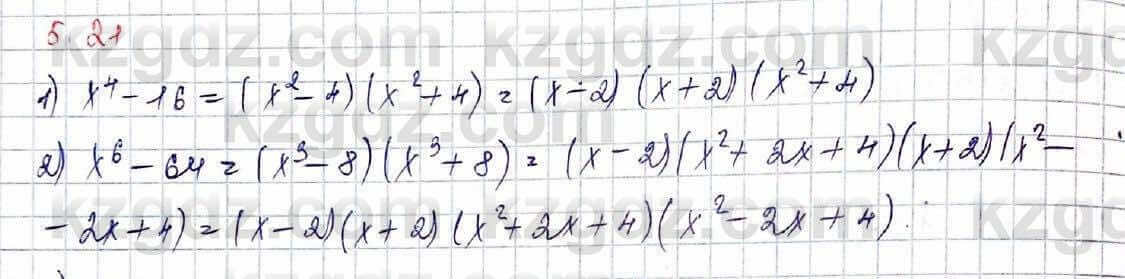 5. 21
1) x⁴ - 16 = (x² - 4)(x² + 4) = (x - 2)(x + 2)(x² + 4)
2) x⁶ - 64 = (x³ - 8)(x³ + 8) = (x - 2)(x² + 2x + 4)(x + 2)(x² -
- 2x + 4) = (x - 2)(x + 2)(x² + 2x + 4)(x² - 2x + 4).
kzgdz.com
kzgdz.com
kzgdz.com
kzgdz.com